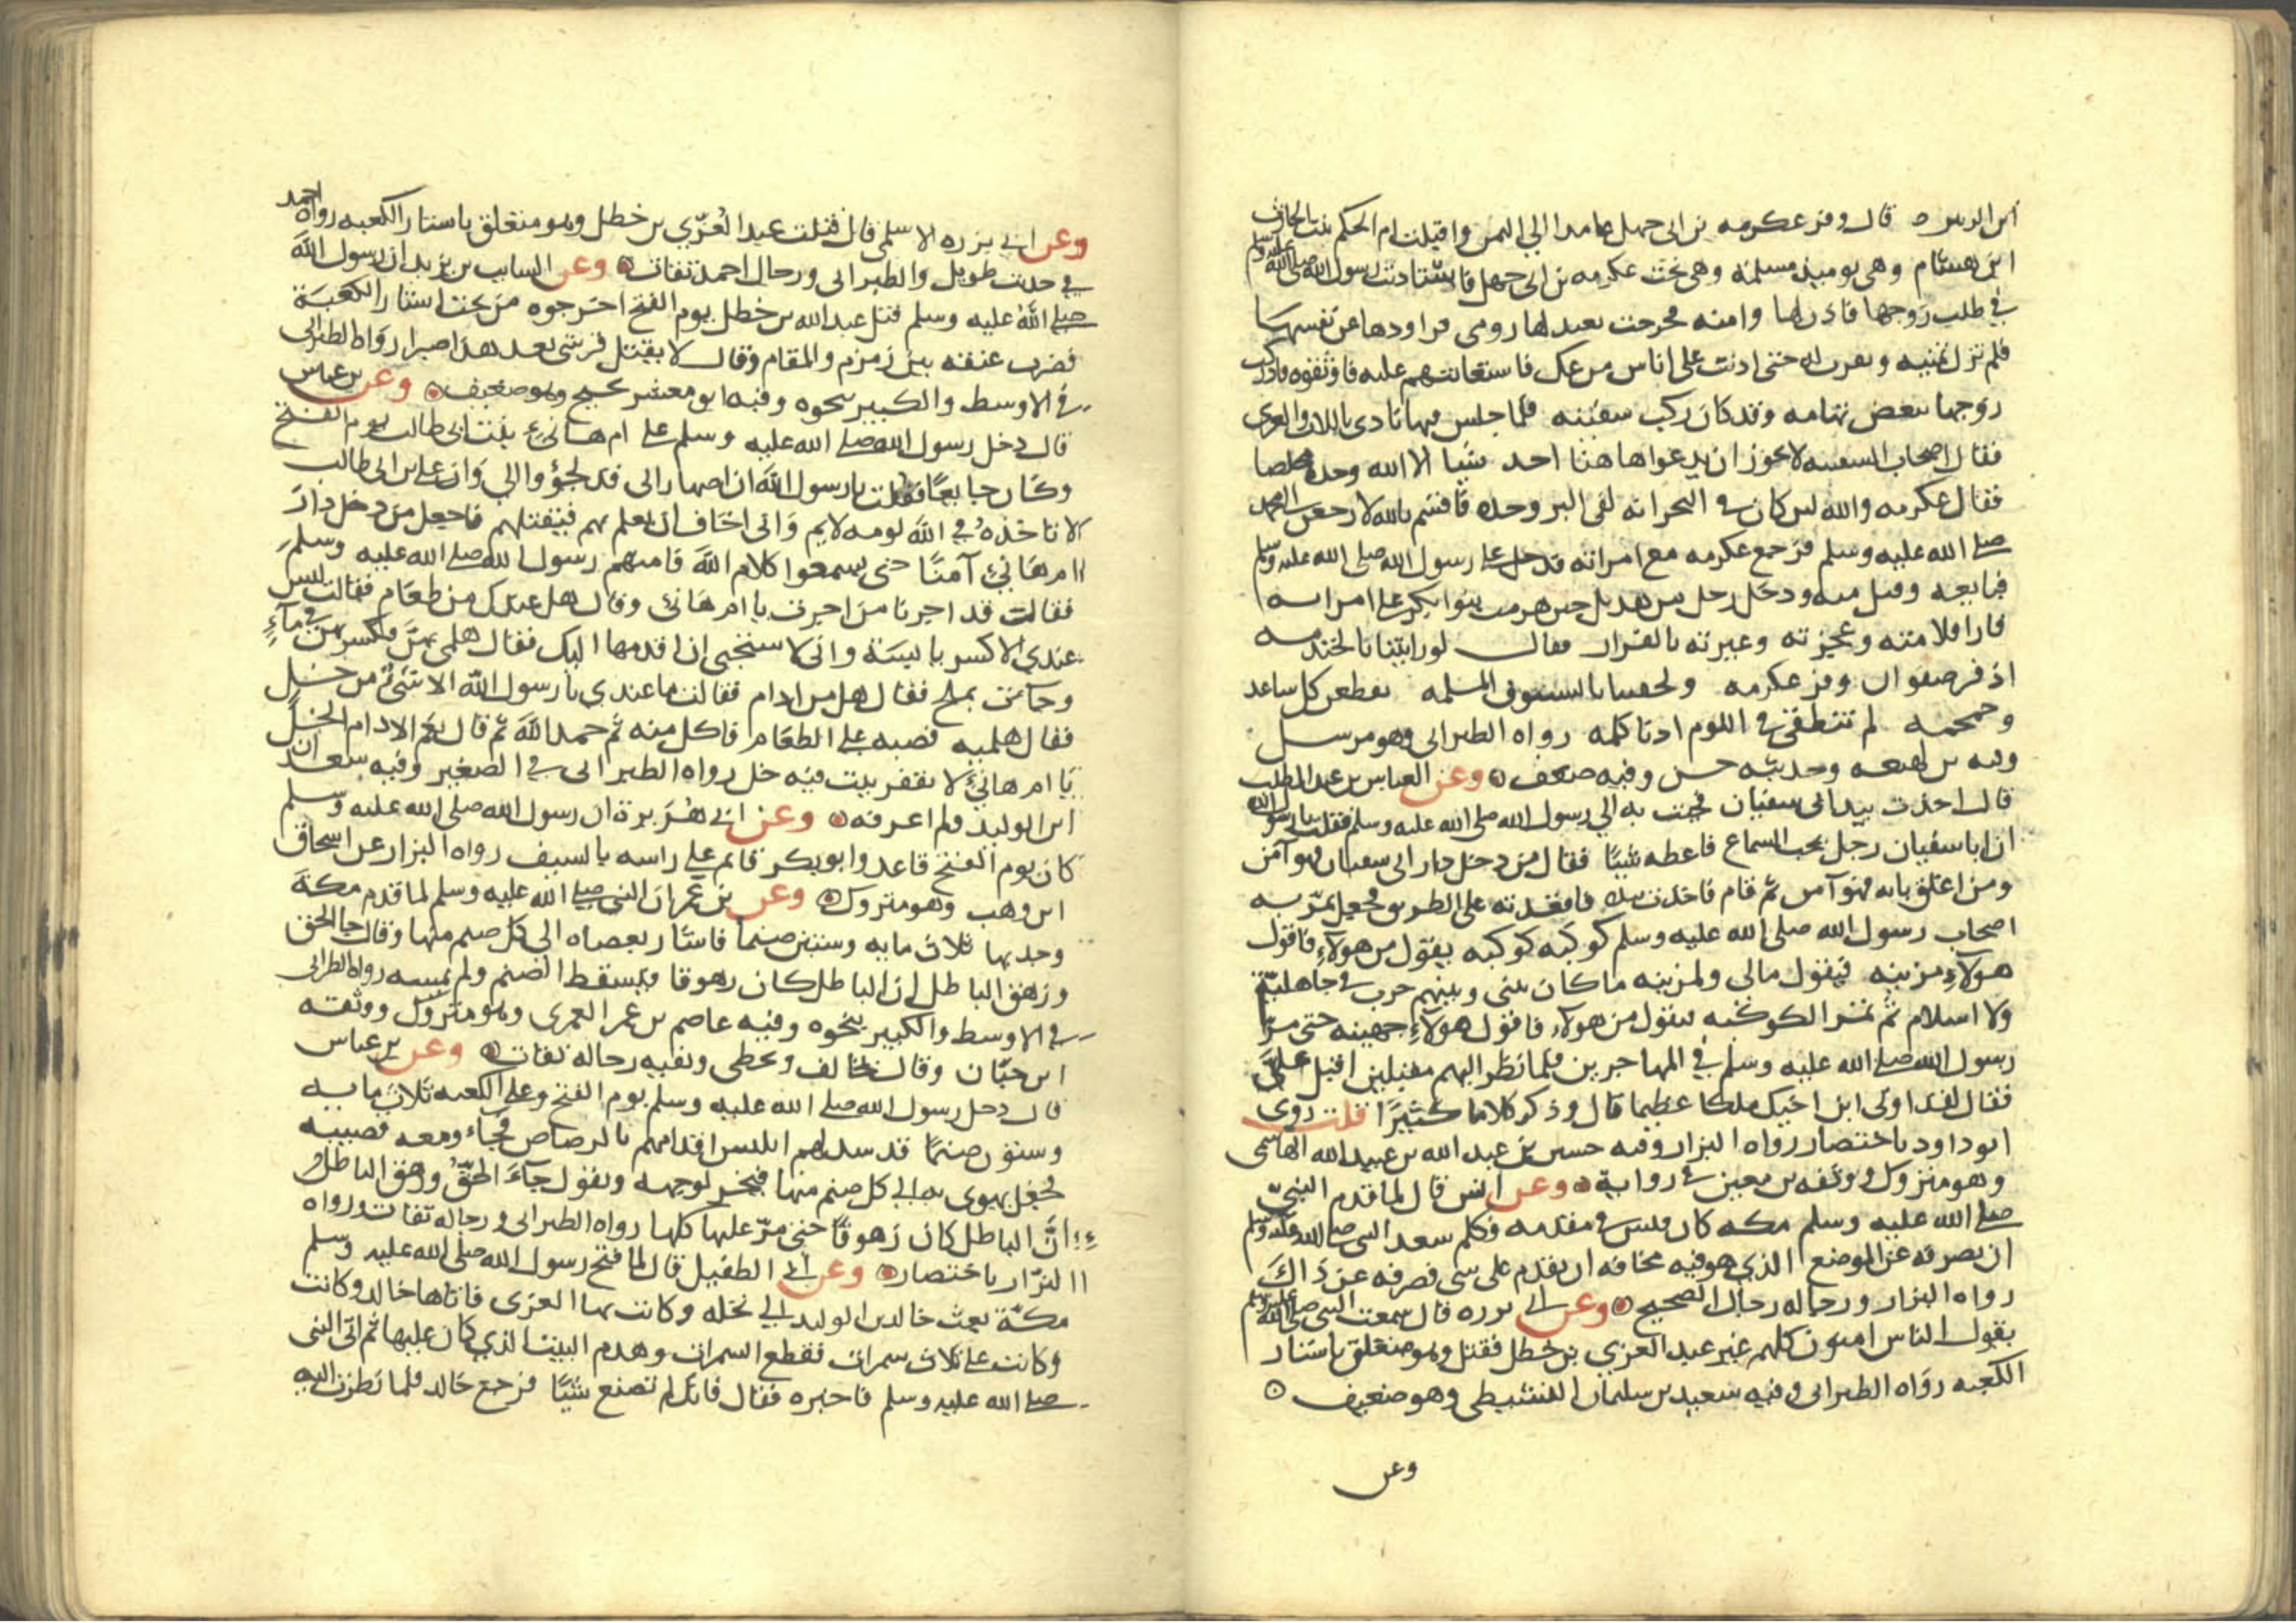 ابن الزبير ٥ قال وفر عكرمه بن ابى جهل عامدا الي اليمن واقبلت ام الحكم بنت الحارث
ابن هشام وهى يوميذ مسلمة وهى تحت عكرمه بن ابى جهل فاستاذنت رسول الله صلى الله عليه وسلم
في طلب زوجها فاذن لها وامنه فخرجت بعبد لها رومى فراودها عن نفسها
فلم تزل تمنيه وتقرب له حتى اذنت على اناس من عك فاستعانتهم عليه فاوثقوه فادركت
زوجها ببعض تهامه وقد كان ركب سفينه فلما جلس فيها نادى باللات والعزى
فقال اصحاب السفينه لا يجوز ان يدعوا هاهنا احد شيا الا الله وحده مخلصا
فقال عكرمه والله لين كان فى البحر انه لفى البر وحده فاقسم بالله لارجعن الى محمد
صلى الله عليه وسلم فرجع عكرمه مع امراته فدخل على رسول الله صلى الله عليه وسلم
فبايعه وقبل منه ودخل رجل من هذيل حين هزمت بنوا بكر على امراته
فارا فلامته وعجزته وعيرته بالفرار فقال لو رايتنا بالخندمه
اذ فر صفوان وفر عكرمه ولحقتنا بالسيوف المسلمه يقطعن كل ساعد
وجمجمه لم تنطقى فى اللوم ادنا كلمه رواه الطبرانى وهو مرسل
وفيه بن لهيعه وحديثه حسن وفيه ضعف ⊙ وعن العباس بن عبد المطلب
قال اخذت بيد ابى سفيان فجيت به الي رسول الله صلى الله عليه وسلم فقلت يا رسول الله
ان ابا سفيان رجل يحب السماع فاعطه شيئا فقال من دخل دار ابى سفيان فهو آمن
ومن اغلق بابه فهو آمن ثم قام فاخذت بيده فاقعدته على الطريق فجعل يمر به
اصحاب رسول الله صلى الله عليه وسلم كوكبه كوكبه يقول من هولآء فاقول
هولآء مزينه فيقول مالى ولمزينه ما كان بينى وبينهم حرب فى جاهلية
ولا اسلام ثم تمر الكوكبه فيقول من هولآء فاقول هولاء جهينه حتى مرّ
رسول الله صلى الله عليه وسلم في المهاجرين فلما نظر اليهم مقبلين اقبل علىّ
فقال لقد اوتى ابن اخيك ملكا عظيما قال وذكر كلاما كثيرا قلت روى
ابو داود باختصار رواه البزار وفيه حسين بن عبد الله بن عبيد الله الهاشمى
وهو متروك ووثقه بن معين فى رواية ⊙ وعن انس قال لما قدم النبىّ
صلى الله عليه وسلم مكه كان قيس فى مقدمه فكلم سعد النبى صلى الله عليه وسلم
ان يصرفه عن الموضع الذي هو فيه مخافه ان يقدم على شى فصرفه عن ذالك
رواه البزار ورجاله رجال الصحيح ⊙ وعن ابى برزه قال سمعت النبى صلى الله عليه وسلم
يقول الناس امنون كلهم غير عبد العزي بن خطل فقتل وهو متعلق باستار
الكعبه رواه الطبرانى وفيه سعيد بن سليمان النشيطى وهو ضعيف ⊙
وعن
وعن ابى برزه الاسلمى قال قتلت عبد العُزّي بن خطل وهو متعلق باستار الكعبه رواه احمد
في حديث طويل والطبرانى ورجال احمد ثقات ⊙ وعن السايب بن يزيد ان رسول الله
صلى الله عليه وسلم قتل عبد الله بن خطل يوم الفتح اخرجوه من تحت استار الكعبة
فضرب عنقه بين زمزم والمقام وقال لا يقتل قرشى بعد هذا صبرا رواه الطبرانى
فى الاوسط والكبير بنحوه وفيه ابو معشر نجيح وهو ضعيف ⊙ وعن بن عباس
قال دخل رسول الله صلى الله عليه وسلم على ام هانىء بنت ابى طالب يوم الفتح
وكان جايعًا فقلت يا رسول الله ان اصهارا لى قد لجؤوا الي وان على بن ابى طالب
لا تاخذهُ في الله لومه لايم وانى اخاف ان يعلم بهم فيقتلهم فاجعل من دخل دار
ام هانئ آمنًا حتى يسمعوا كلام الله فامنهم رسول الله صلى الله عليه وسلم
فقالت قد اجرنا من اجرت يا ام هانئ وقال هل عندك من طعام فقالت ليس
عندي الا كسر يابسة وانى لاستحي ان اقدمها اليك فقال هلمى بهنّ فكسرهن فى مآءٍ
وجآءت بملح فقال هل من ادام فقالت ما عندي يا رسول الله الا شئ من خل
فقال هلميه فصبه على الطعام فاكل منه ثم حمد الله ثم قال نعم الادام الخلُ
يا ام هانئ لا يقفر بيت فيه خل رواه الطبرانى فى الصغير وفيه سعدان
ابن الوليد ولم اعرفه ⊙ وعن ابى هُرَيرة ان رسول الله صلى الله عليه وسلم
كان يوم الفتح قاعد وابو بكر قايم على راسه بالسيف رواه البزار عن اسحاق
ابن وهب وهو متروك ⊙ وعن بن عمر ان النبى صلى الله عليه وسلم لما قدم مكة
وجد بها ثلاث مايه وستين صنما فاشار بعصاه الى كل صنم منها وقال جا الحق
وزهق الباطل ان الباطل كان زهوقا فيسقط الصنم ولم يمسه رواه الطبرانى
فى الاوسط والكبير بنحوه وفيه عاصم بن عمر العمرى وهو متروك ووثقه
ابن حبّان وقال يخالف ويخطى وبقيه رجاله ثقات ⊙ وعن بن عباس
قال دخل رسول الله صلى الله عليه وسلم يوم الفتح وعلى الكعبه ثلاث مايه
وستون صنمًا قد شد لهم ابليس اقدامهم بالرصاص فجاء ومعه قضيبه
فجعل يهوى به الى كل صنم منها فيخر لوجهه ويقول جآء الحقُّ وزهق الباطل
انّ الباطل كان زهوقًا حتى مرّ عليها كلها رواه الطبرانى ورجاله ثقات ورواه
البزّار باختصار ⊙ وعن ابى الطفيل قال لما فتح رسول الله صلى الله عليه وسلم
مكّة بعث خالد بن الوليد الى نخله وكانت بها العزى فاتاها خالد وكانت
وكانت على ثلاث سمرات فقطع السمرات وهدم البيت الذي كان عليها ثم اتى النبى
صلى الله عليه وسلم فاخبره فقال فانك لم تصنع شيئا فرجع خالد فلما نظرت اليه